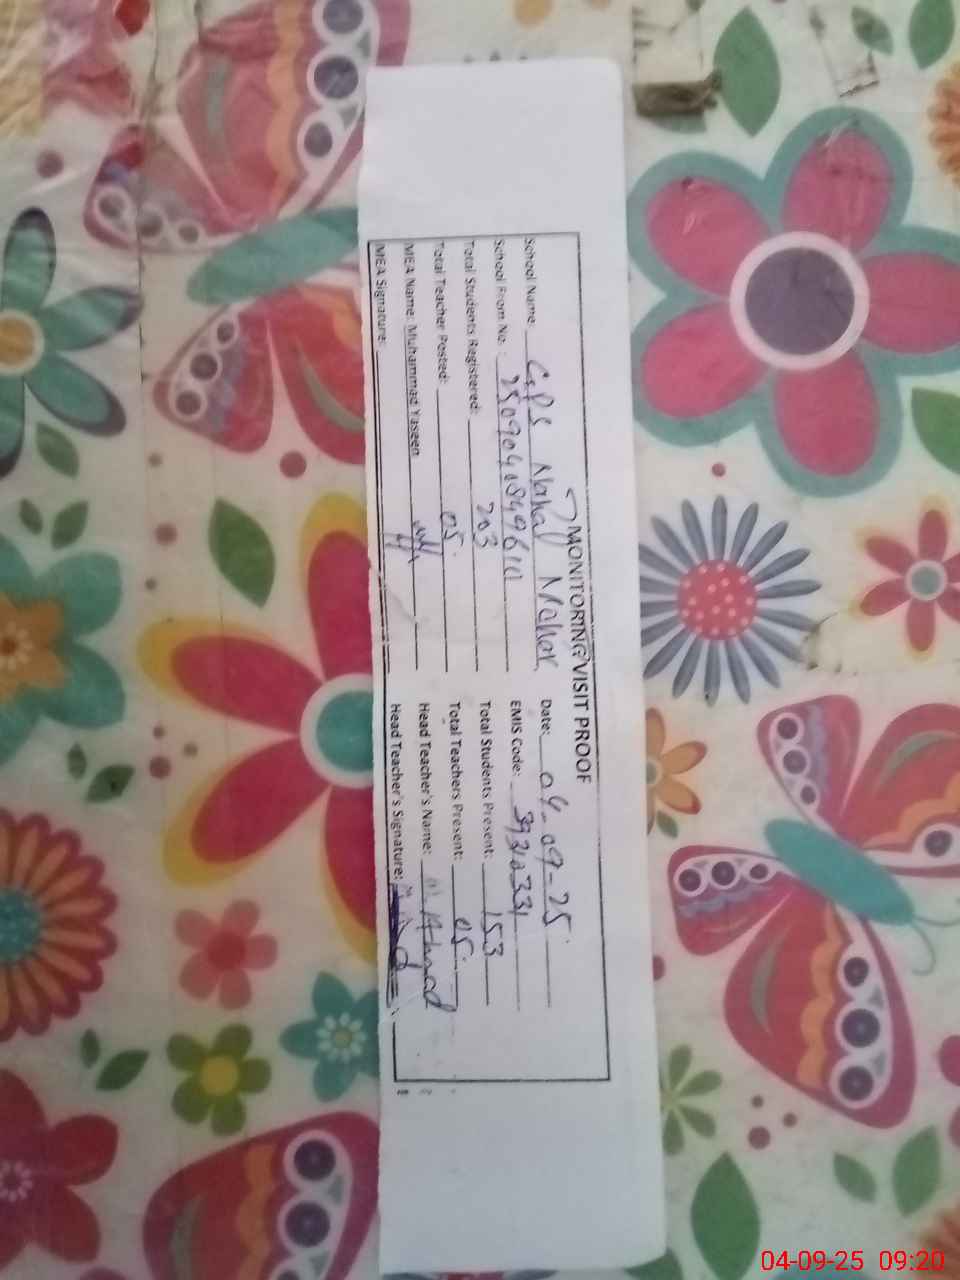 MONITORING VISIT PROOF
School Name: GPS Nahal Mahar Date: 04-09-25
School From No: 2509040849610 EMIS Code: 39310331
Total Students Registered: 203 Total Students Present: 153
Total Teacher Posted: 05 Total Teachers Present: 05
MEA Name: Muhammad Yaseen Head Teacher's Name:
MEA Signature: Head Teacher's Signature:
04-09-25 09:20